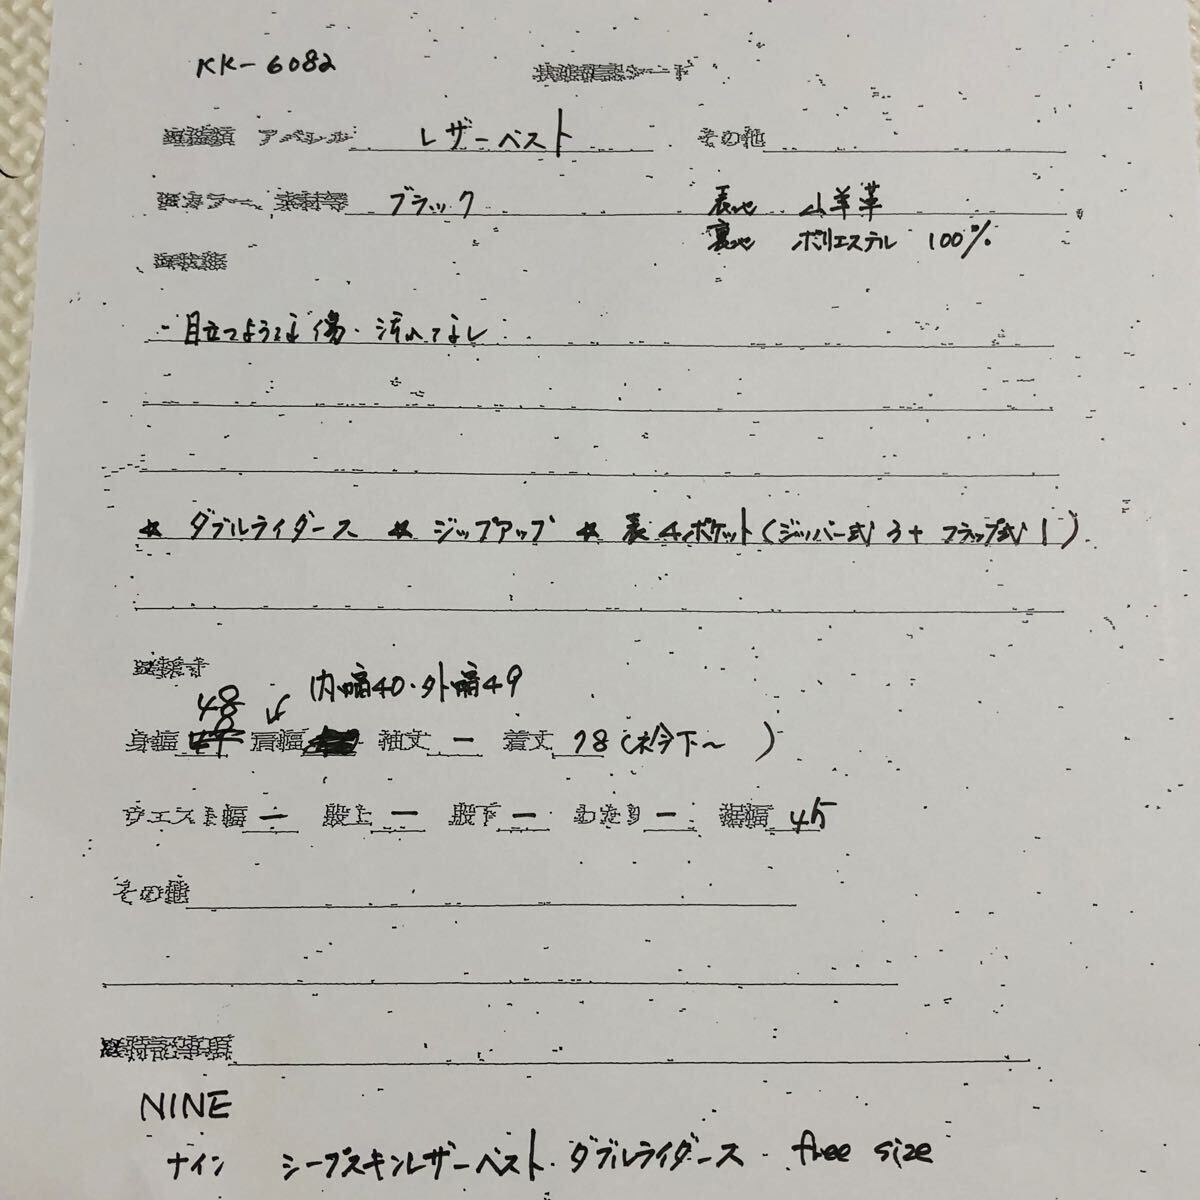 KK-6082 状態確認シート
アパレル レザーベスト その他
カラー、素材等 ブラック 表地 山羊革
裏地 ポリエステル 100%
状態
・目立つような傷・汚れなし
☆ ダブルライダース ☆ ジップアップ ☆ 表4ポケット(ジッパー式3+フラップ式1)
採寸
48 内幅40・外幅49
身幅 肩幅 袖丈 ー 着丈 78(衿下〜 )
ウエスト幅 ー 股上 ー 股下 ー わたり ー 裾幅 45
その他
特記事項
NINE
ナイン シープスキンレザーベスト・ダブルライダース・free size